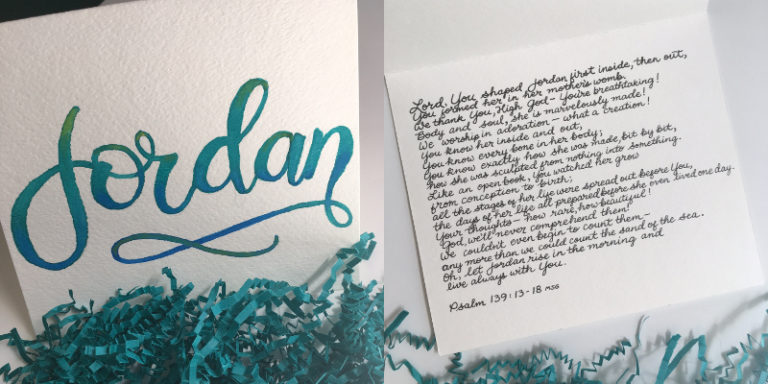 Jordan
Lord, You shaped Jordan first inside, then out,
You formed her in her mother's womb.
We thank You, High God - You're breathtaking!
Body and soul, she is marvelously made!
We worship in adoration - what a creation!
You know her inside and out,
You know every bone in her body;
You know exactly how she was made, bit by bit,
how she was sculpted from nothing into something.
Like an open book, You watched her grow
from conception to birth;
all the stages of her life were spread out before You,
the days of her life all prepared before she even lived one day.
Your thoughts - how rare, how beautiful!
God, we'll never comprehend them!
We couldn't even begin to count them -
any more than we could count the sand of the sea.
Oh, let Jordan rise in the morning and
live always with You.
Psalm 139:13-18 MSG